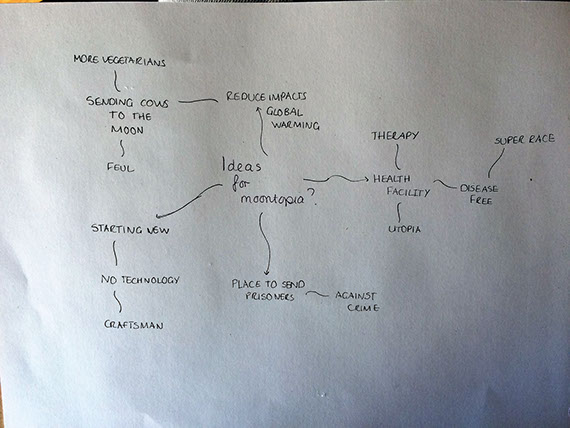 MORE VEGETARIANS
SENDING COWS
TO THE
MOON
FEUL
REDUCE IMPACTS
GLOBAL
WARMING
THERAPY
SUPER RACE
Ideas
for
moontopia?
HEALTH
FACILITY
DISEASE
FREE
UTOPIA
STARTING NEW
NO TECHNOLOGY
CRAFTSMAN
PLACE TO SEND
PRISONERS
AGAINST
CRIME